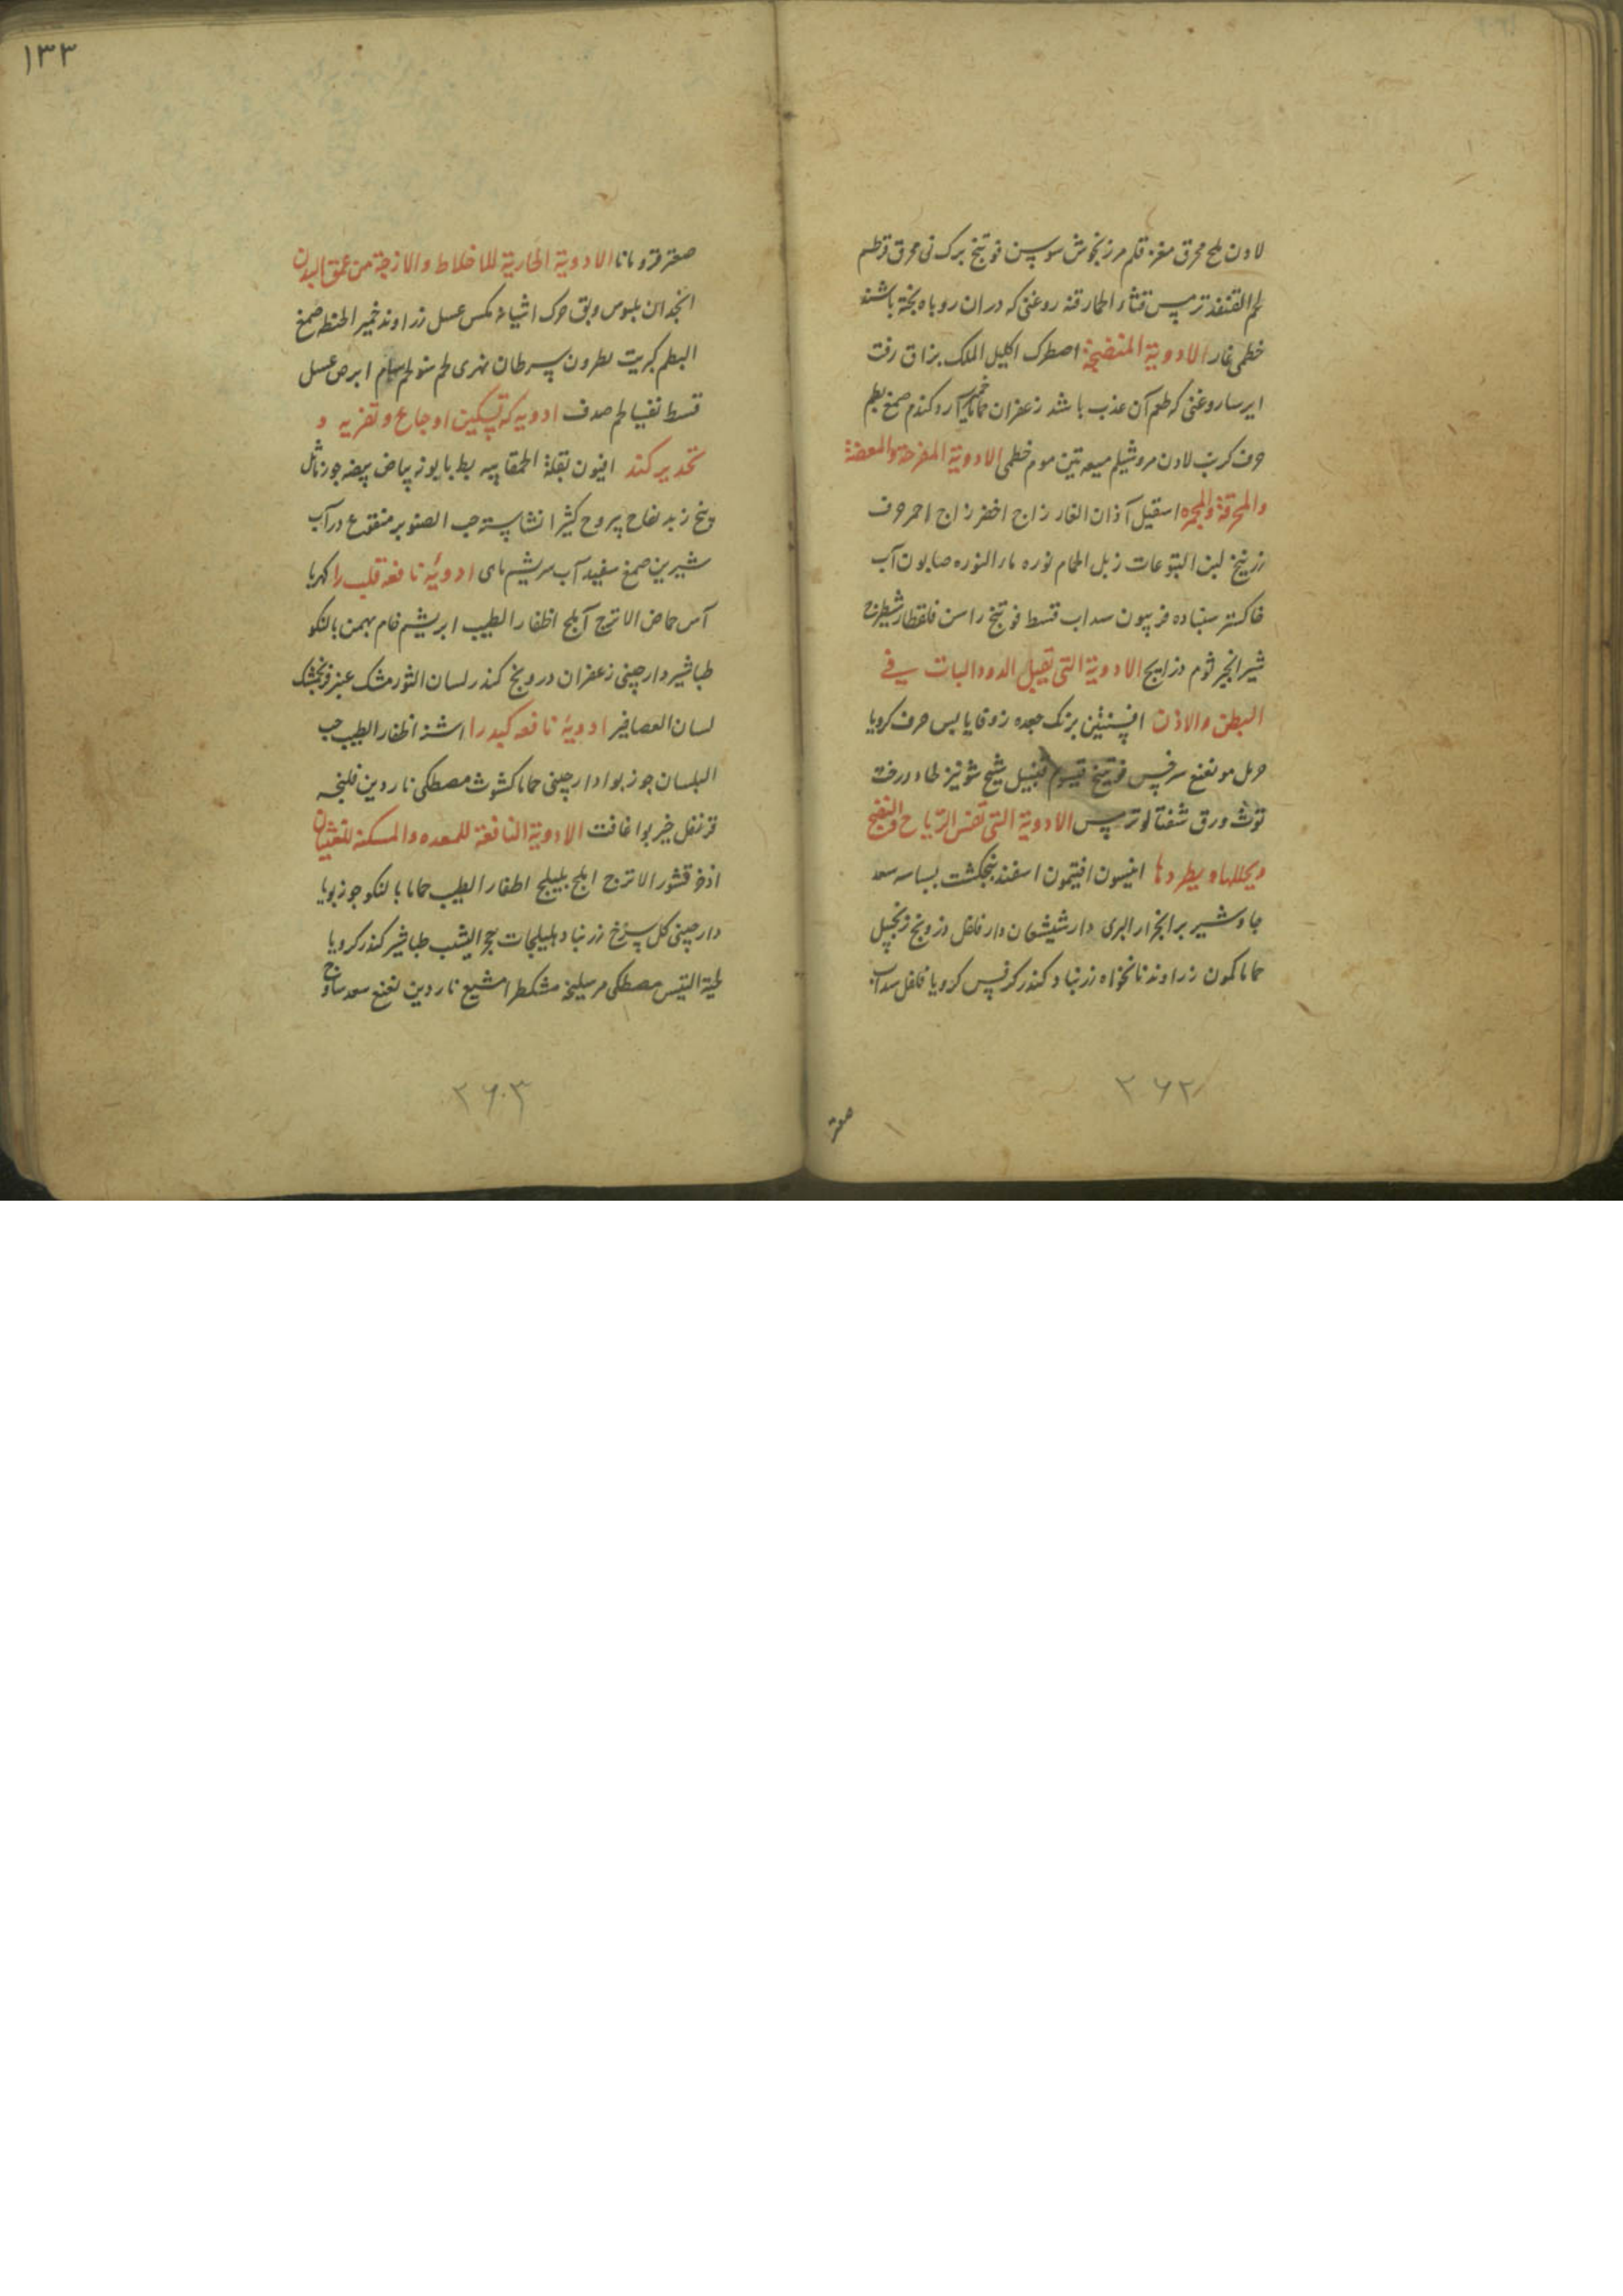 لادن ملح محرق مغزه قلم مرزنجوش سوسن فوتنج برک نی محرق قرطم
لحم القنفذ ترمس قثاء الحمار قنه روغنی که دران روباه پخته باشند
خطمی غار الادویة المنضجة اصطرک اکلیل الملک بزاق زفت
ایرسا روغنی که طعم آن عذب باشد زعفران حماما خمیر آرد کندم صمغ بطم
حرف کرنب لادن مرو شیلم میعه تین موم خطمی الادویة المقرحة والمعفنة
والمحرقة والمحمره اسقیل آذان الفار زاج اخضر زاج احمر حرف
زرنیخ لبن الیتوعات زبل الحمام نوره ماء النوره صابون آب
خاکستر سنباده فربیون سداب قسط فوتنج راسن قلقطار شیطرج
شیر انجیر ثوم ذراریح الادویة التی تقتل الدود البات فی
البطن والاذن افسنتین برنک جعده زوفا یابس حرف کرویا
حرمل مو نعنع سرخس فوتنج قیسوم قنبیل شیح شونیز طاء درخت
توث ورق شفتالو ترمس الادویة التی تفش الریاح والنفخ
ویحللها ویطردها انیسون افتیمون اسفند پنجنکشت بسباسه سعد
جاوشیر بر انجزار البری دارشیشعان دارفلفل درونج زنجبیل
حماما کمون زراوند نانخواه زرنباد کندر کرفس کرویا فلفل سداب
صعتر
۲۶۲
۱۳۳
صعتر قردمانا الادویة الجاریة للاخلاط والازجة من عمق البدن
انجدان بلبوس وبق حرک اشیاء مکس عسل زراوند خمیر الحنطه صمغ
البطم کبریت بطرون سرطان نهری لحم سام ابرص عسل
قسط تفسیا لحم صدف ادویه که تسکین اوجاع وتغریه و
تخدیر کند افیون بقلة الحمقا پیه بط بابونه بیاض بیضه جوز ماثل
وبنج زبد تفاح یبروح کثیرا نشاسته حب الصنوبر منقوع درآب
شیرین صمغ سفید آب سریشم ماهی ادویۀ نافعه قلب را کهربا
آس حماض الاترج آملج اظفار الطیب ابریشم خام بهمن بالنکو
طباشیر دارچینی زعفران درونج کندر لسان الثور مشک عنبر فرنجمشک
لسان العصافیر ادویۀ نافعه کبد را اشنه اظفار الطیب حب
البلسان جوزبوا دارچینی حماما کشوث مصطکی ناردین فلنجه
قرنفل خیربوا غافت الادویة النافعة للمعده والمسکنه للغثیان
اذخر قشور الاترج املج بلیلج اظفار الطیب حماما بالنکو جوزبویا
دارچینی کل سرخ زرنباد هلیلجات حجر الیشب طباشیر کندر کرویا
لحیة التیس مصطکی مر سلیخه مشکطرامشیع ناردین نعنع سعد ساذج
۲۶۳